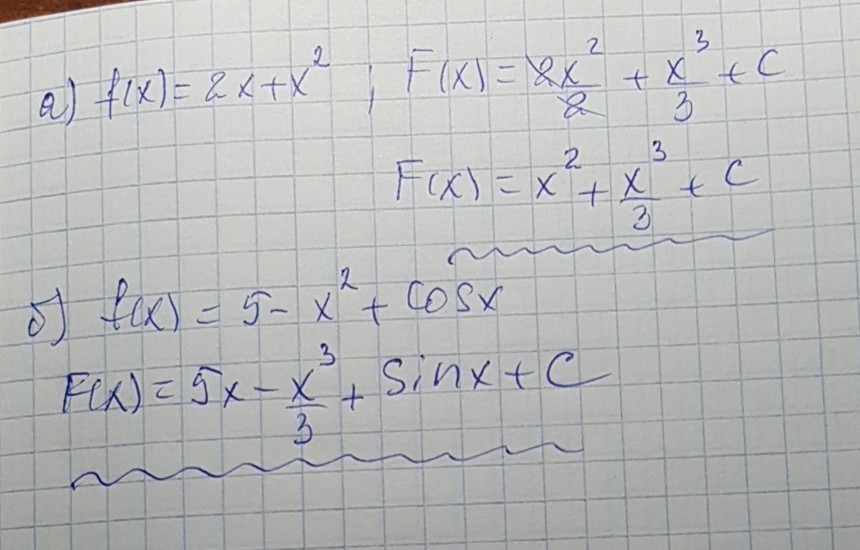 а) f(x) = 2x + x² ; F(x) = 2x²/2 + x³/3 + C
F(x) = x² + x³/3 + C
б) f(x) = 5 - x² + cosx
F(x) = 5x - x³/3 + sinx + C